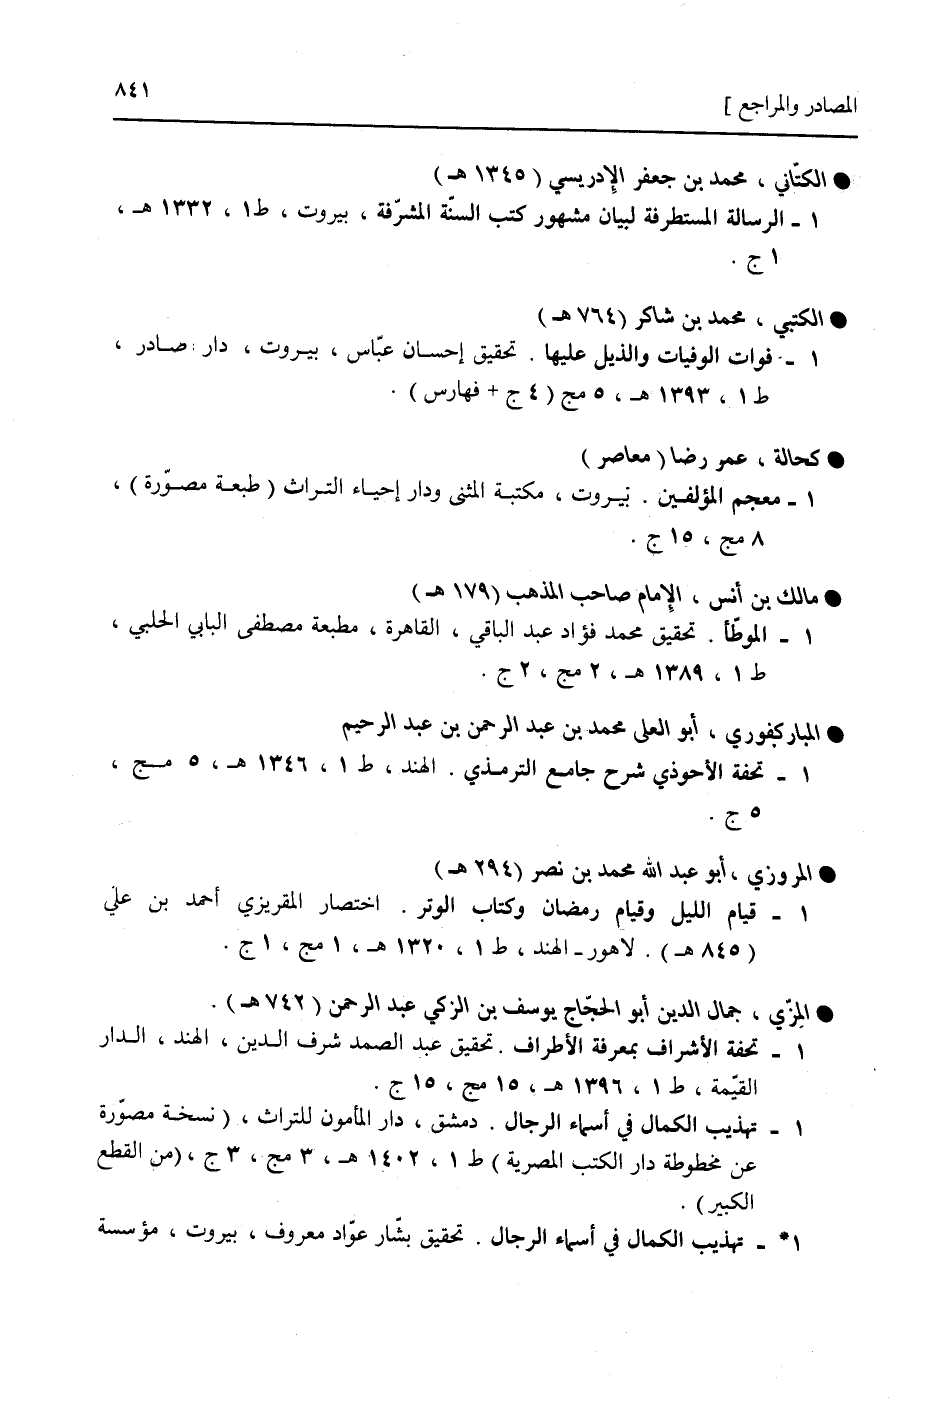 المصادر والمراجع ]
٨٤١
● الكتّاني ، محمد بن جعفر الإدريسي ( ١٣٤٥ هـ )
١ ـ الرسالة المستطرفة لبيان مشهور كتب السنّة المشرّفة ، بيروت ، ط١ ، ١٣٣٢ هـ ،
١ ج .
● الكتبي ، محمد بن شاكر (٧٦٤ هـ )
١ ـ فوات الوفيات والذيل عليها . تحقيق إحسان عبّاس ، بيروت ، دار صادر ،
ط ١ ، ١٣٩٣ هـ ، ٥ مج ( ٤ ج + فهارس ) .
● كحالة ، عمر رضا ( معاصر )
١ ـ معجم المؤلفين . بيروت ، مكتبة المثنى ودار إحياء التراث ( طبعة مصوّرة ) ،
٨ مج ، ١٥ ج .
● مالك بن أنس ، الإمام صاحب المذهب (١٧٩ هـ )
١ ـ الموطّأ . تحقيق محمد فؤاد عبد الباقي ، القاهرة ، مطبعة مصطفى البابي الحلبي ،
ط ١ ، ١٣٨٩ هـ ، ٢ مج ، ٢ ج .
● المباركفوري ، أبو العلى محمد بن عبد الرحمن بن عبد الرحيم
١ ـ تحفة الأحوذي شرح جامع الترمذي . الهند ، ط ١ ، ١٣٤٦ هـ ، ٥ مج ،
٥ ج .
● المروزي ، أبو عبد الله محمد بن نصر (٢٩٤ هـ )
١ ـ قيام الليل وقيام رمضان وكتاب الوتر . اختصار المقريزي أحمد بن علي
( ٨٤٥ هـ ) . لاهور ـ الهند ، ط ١ ، ١٣٢٠ هـ ، ١ مج ، ١ ج .
● المِزّي ، جمال الدين أبو الحجّاج يوسف بن الزكي عبد الرحمن ( ٧٤٢ هـ ) .
١ ـ تحفة الأشراف بمعرفة الأطراف . تحقيق عبد الصمد شرف الدين ، الهند ، الدار
القيّمة ، ط ١ ، ١٣٩٦ هـ ، ١٥ مج ، ١٥ ج .
١ ـ تهذيب الكمال في أسماء الرجال . دمشق ، دار المأمون للتراث ، ( نسخة مصوّرة
عن مخطوطة دار الكتب المصرية ) ط ١ ، ١٤٠٢ هـ ، ٣ مج ، ٣ ج ، (من القطع
الكبير ) .
١* ـ تهذيب الكمال في أسماء الرجال . تحقيق بشّار عوّاد معروف ، بيروت ، مؤسسة